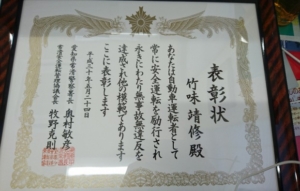 表彰状
竹味靖修殿
あなたは自動車運転者として
常に安全運転を励行され
永きにわたり無事故無違反を
達成され他の模範であります
ここに表彰します
平成三十年五月二十四日
愛知県常滑警察署長 奥村敏彦
常滑安全運転管理協議会長 牧野克則